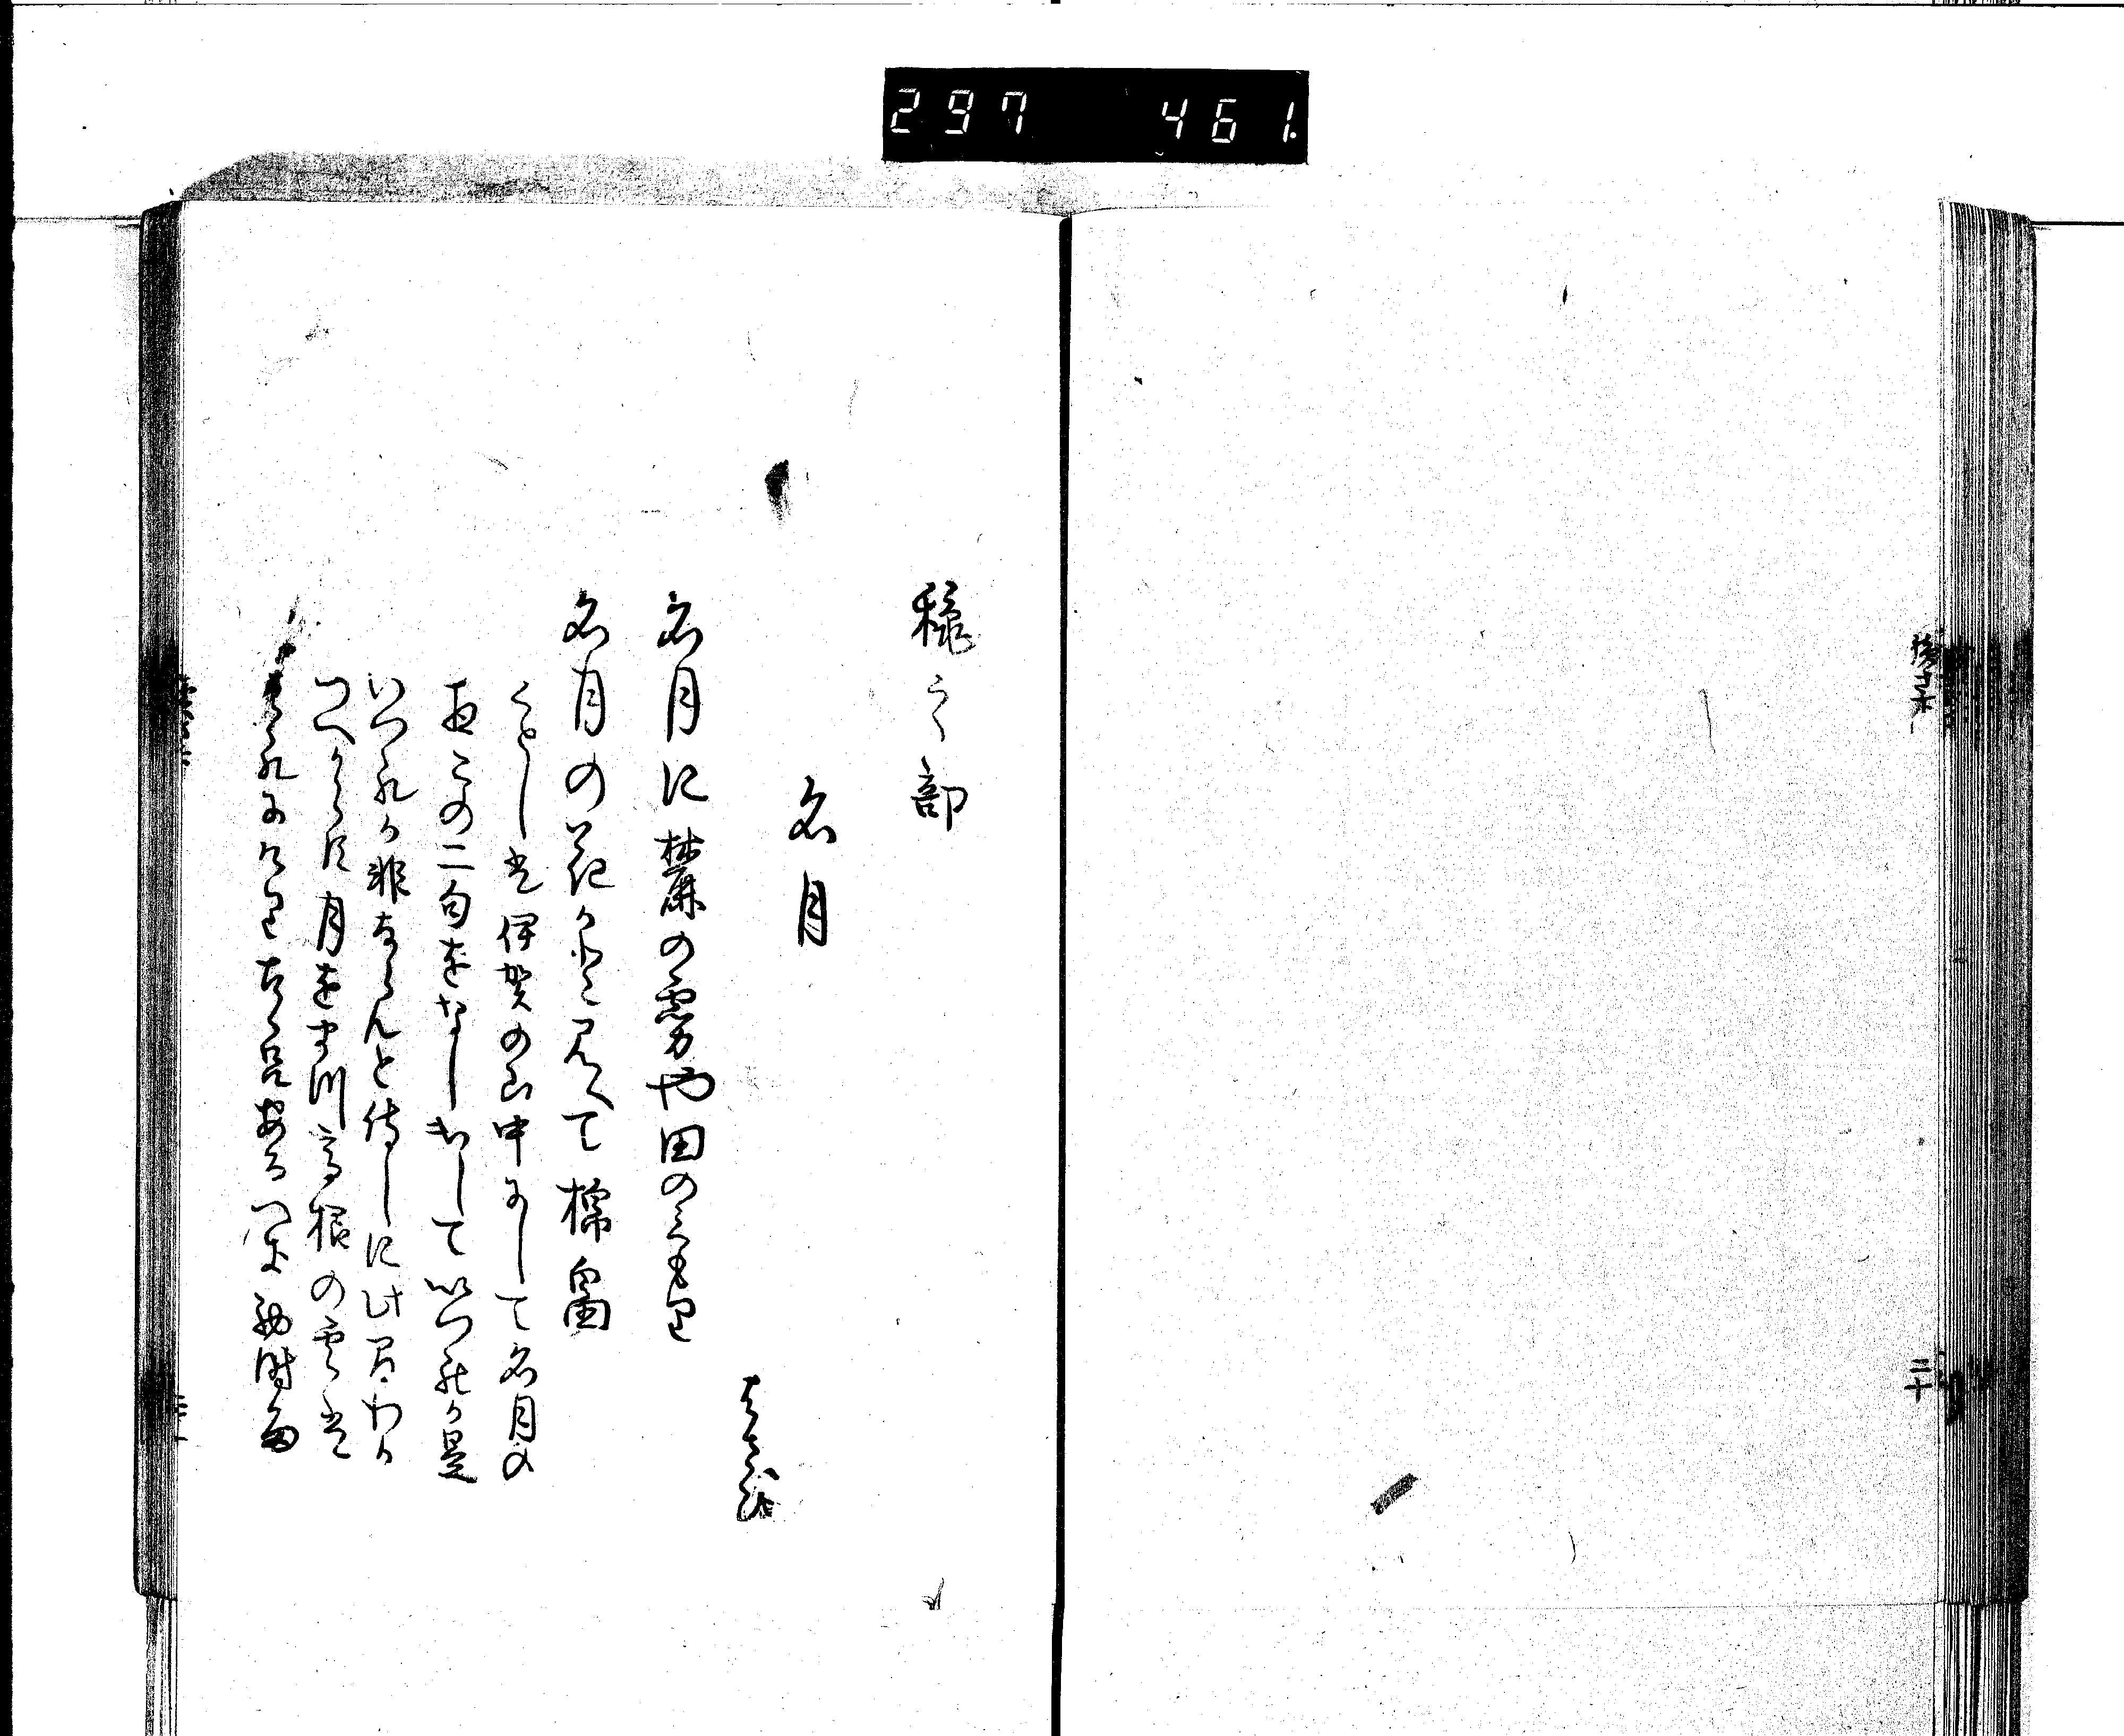 297 461
穐之部
名月
はせを
名月に麓の霧や田のくもり
名月の花かと見へて棉畠
ことしは伊賀の山中にして名月の
夜この二句をなし出していつれか是
いつれか非ならんと侍しに此間わか
つへからす月をまつ高根の雲は
はれにけりこゝろあるへき初時雨
続さ
二十